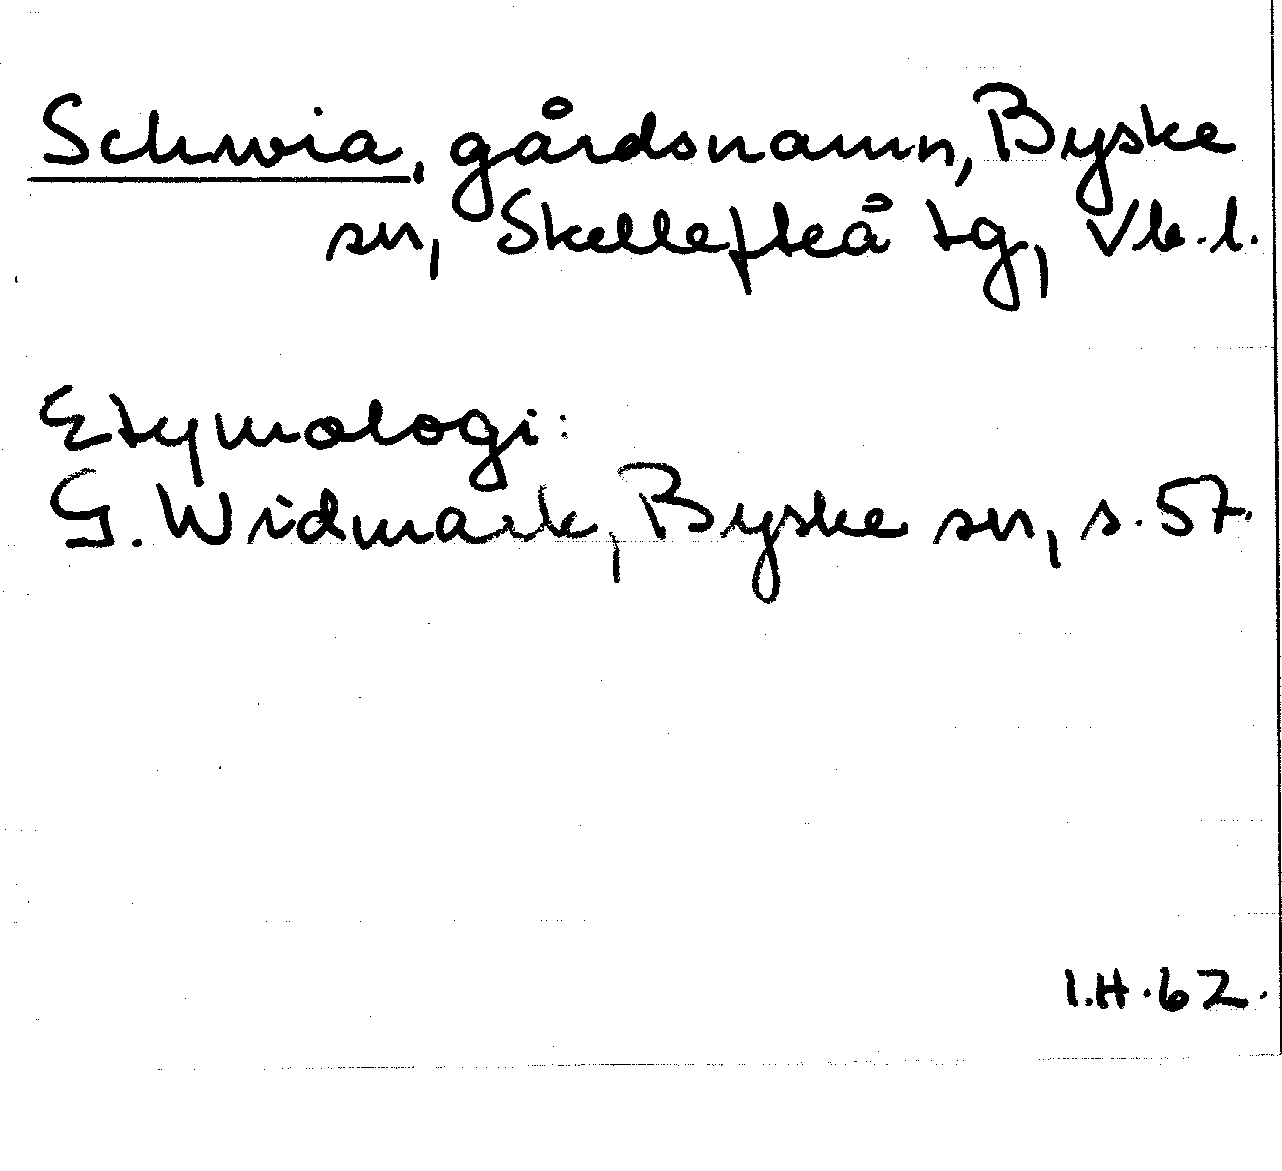 Schwia, gårdsnamn, Byske
sn, Skellefteå tg, Vb. l.
Etymologi:
G. Widmark, Byske sn, s. 57.
I.H. 62.